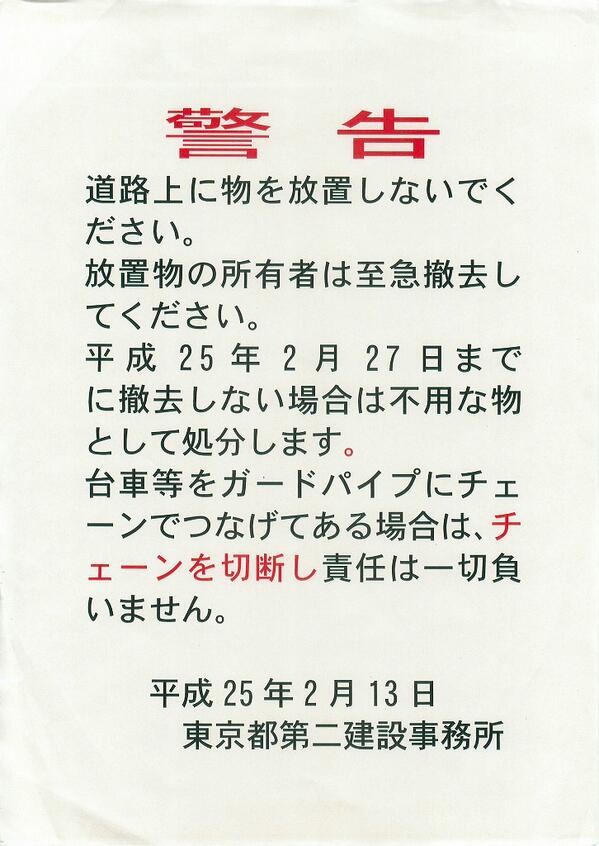 警告
道路上に物を放置しないでく
ださい。
放置物の所有者は至急撤去し
てください。
平成25年2月27日まで
に撤去しない場合は不用な物
として処分します。
台車等をガードパイプにチェ
ーンでつなげてある場合は、チ
ェーンを切断し責任は一切負
いません。
平成25年2月13日
東京都第二建設事務所